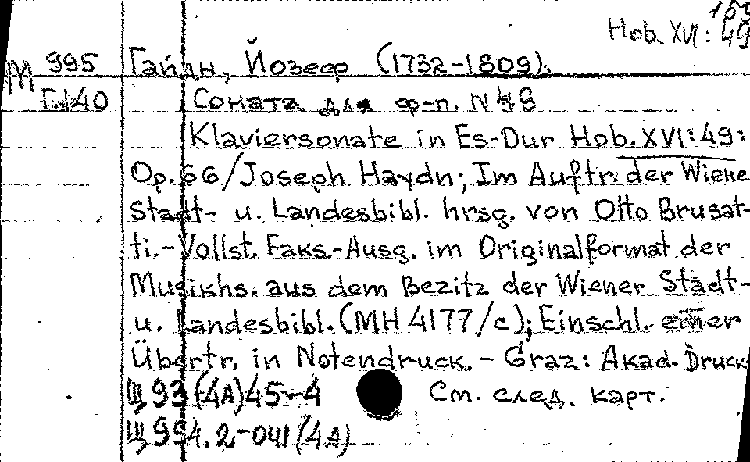 Hob. XVI: 49
М 995 Гайдн, Йозеф (1732-1809).
Г-140 Соната для ф-п. N 48
Klaviersonate in Es-Dur Hob. XVI:49:
Op.66/Joseph Haydn; Im Auftr. der Wiene
Stadt- u. Landesbibl. hrsg. von Otto Brusat-
ti.-Vollst. Faks.-Ausg. im Originalformat der
Musikhs. aus dem Bezitz der Wiener Stadt-
u. Landesbibl. (MH 4177/c); Einschl. einer
Übertr. in Notendruck. - Graz: Akad. Druck
Щ93(4А)45-4 См. след. карт.
Щ954.2-041(4А)